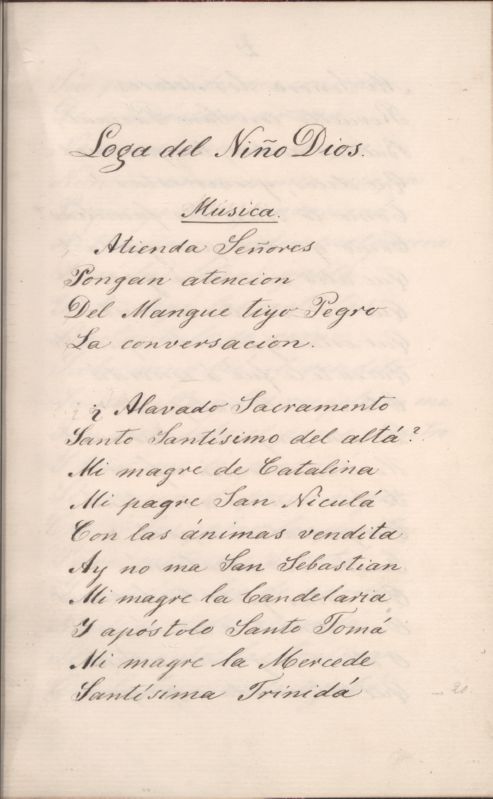 Loga del Niño Dios.
Música.
Atienda Señores
Pongan atencion
Del Mangue tiyo Pegro
La conversacion.
¿ Alavado Sacramento
Santo Santísimo del altá?
Mi magre de Catalina
Mi pagre San Niculá
Con las ánimas vendita
Ay no ma San Sebastian
Mi magre la Candelaria
Y apóstolo Santo Tomá
Mi magre la Mercede
Santísima Trinidá
20